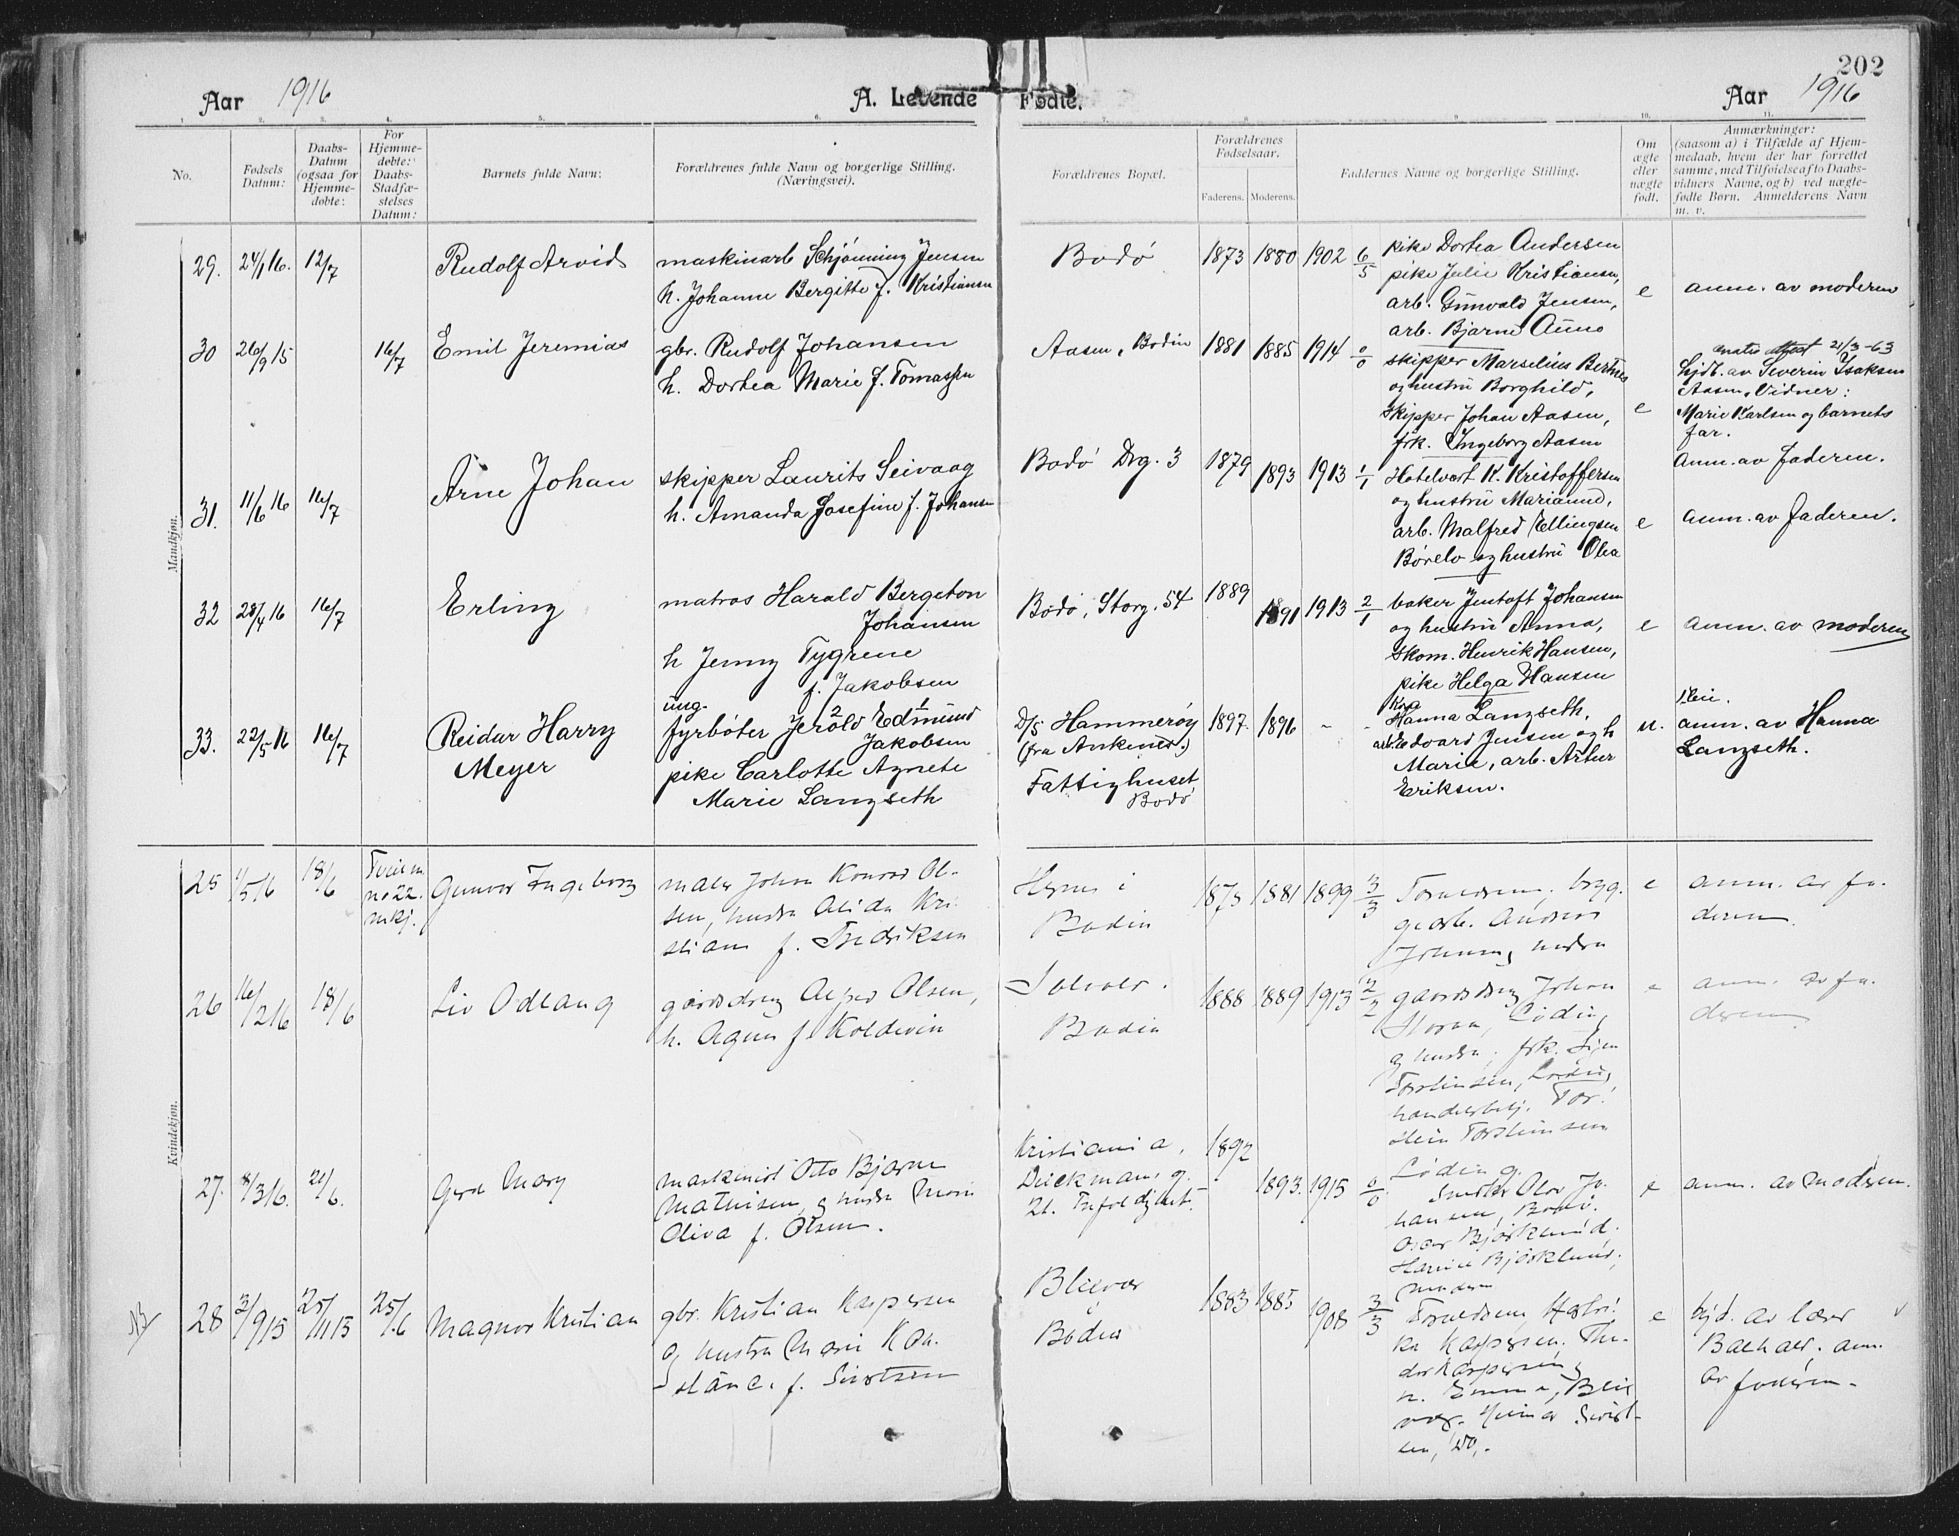 202
Aar 1916
A. Levende Fødte.
Aar 1916
1. 2. 3. 4. 5. 6. 7. 8. 9. 10. 11.
No.
Fødsels Datum:
Daabs-Datum (ogsaa for Hjemme-døbte:
For Hjemme-døbte: Daabs-Stadfæ-stelses Datum:
Barnets fulde Navn:
Forældrenes fulde Navn og borgerlige Stilling.
(Næringsvei).
Forældrenes Bopæl.
Forældrenes Fødselsaar.
Faderens. Moderens.
Faddernes Navne og borgerlige Stilling.
Om ægte eller nægte født.
Anmærkninger:
(saasom a) i Tilfælde af Hjem-
medaab. hvem der har forrettet
samme, med Tilføielse af to Daabs-
vidners Navne, og b) ved nægte-
fødte Børn. Anmelderens Navn
m. v.
Mandkjøn.
29. 24/1 16. 12/7 Rudolf Arvid
maskinarb Schjønning Jensen
h. Johanne Bergitte f. Kristiansen
Bodø 1873 1880 1902 6/5
pike Dortea Andersen
pike Julie Kristiansen,
arb. Gunvald Jensen,
arb. Bjarne Auno
e anm. av moderen
30 26/9 15 16/7 Emil Jeremias
gbr. Rudolf Johansen
h. Dortea Marie f. Tomassen
Aasen, Bodin 1881 1885 1914 0/0
skipper Marselius Bertnes
og hustru Borghild,
skipper Johan Aasen,
frk. Ingeborg Aasen
e
attest 21/3-63
hjdt. av Severin Isaksen
Aasen, Vidner:
Marie Karlsen og barnets
far.
Anm. av Faderen.
31. 11/6 16 16/7 Arne Johan
skipper Laurits Seivaag
h. Amanda Josefine f. Johansen
Bodø Drg. 3 1879 1893 1913 1/1
Hotelvært K. Kristoffersen
og hustru Marianne,
arb. Malfred Ellingsen
Børelv og hustru Olea
e anm. av faderen.
32 28/4 16 16/7 Erling
matros Harald Bergeton
Johansen
h Jenny Tygrene
f. Jakobsen
Bodø, Storg. 54 1889 1891 1913 2/1
baker Jentoft Johansen
og hustru Anna,
Skom. Henrik Hansen,
pike Helga Hansen
e anm. av moderen
33. 22/5 16 16/7 Reidar Harry
Meyer
ung.
fyrbøter Jerold Edmund
Jakobsen
pike Carlotte Agnete
Marie Langseth
D/S Hammerøy
(fra Ankenes.)
Fattighuset
Bodø
1897. 1896 - -
Hanna Langseth,
arb. Edvard Jensen og h
Marie, arb. Artur
Eriksen.
u. anm. av Hanna
Langseth.
Kvindekjøn.
25 1/5 16 18/6 no 22. mkj. Gunvor Ingeborg
maler Johan Konrad Ol-
sen, hustru Alida Kri-
stiane f. Fredriksen
Hernes i
Bodin
1875 1881 1899 3/3
Forældrene, brygg.
gearb. Andreas
hustru
e anm. av fa-
deren
26 16/2 16 18/6 Liv Odlaug
gaardsdreng Alfred Olsen,
h. Agnes f. Koldevin
Bodin
1888 1889 1913 2/2
gaardsdreng Johan
Løding
og hustru, frk.
Torsteinsen, Løding,
handelsbetj. Tor-
stein Torsteinsen
Løding.
e anm. av fa-
deren
27. 8/3 16. 21/6. Gerd Mary
maskinist Otto Bjarne
Mathisen, og hustru Marie
Oliva f. Olsen.
Kristiania,
1892 1893. 1915 0/0
Smeder Olav Jo-
hansen, Bodø.
Oscar Bjørklund,
Bjørklund,
Moderen
e anm. av moderen.
NB 28 3/9 15 25/11 15 25/6 Magnor Kristian
gbr. Kristian Kaspersen
og hustru Marie Kon-
stance f. Sivertsen
Blixvær
Bodin
1883 1885 1908 3/3
Forældrene,
Kaspersen,
Kaspersen og
h. Emma, Blix-
vær. Sivert-
sen, do.
e hjd. av lærer
anm.
av faderen.